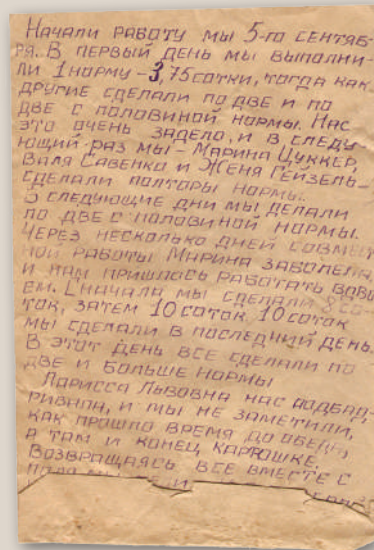 Начали работу мы 5-го сентяб-
ря. В первый день мы выполни-
ли 1 норму – 3,75 сотки, тогда как
другие сделали по две и по
две с половиной нормы. Нас
это очень задело, и в следу-
ющий раз мы – Марина Цуккер,
Валя Савенко и Женя Гейзель –
сделали полторы нормы.
В следующие дни мы делали
по две с половиной нормы.
Через несколько дней совмест
ной работы Марина заболела,
и нам пришлось работать вдво
ем. Сначала мы сделали 8 со
ток, затем 10 соток. 10 соток
мы сделали в последний день.
В этот день все сделали по
две и больше нормы
Ларисса Львовна нас подбад-
ривала, и мы не заметили,
как прошло время до обеда,
а там и конец картошке.
Возвращаясь все вместе с
поля мы